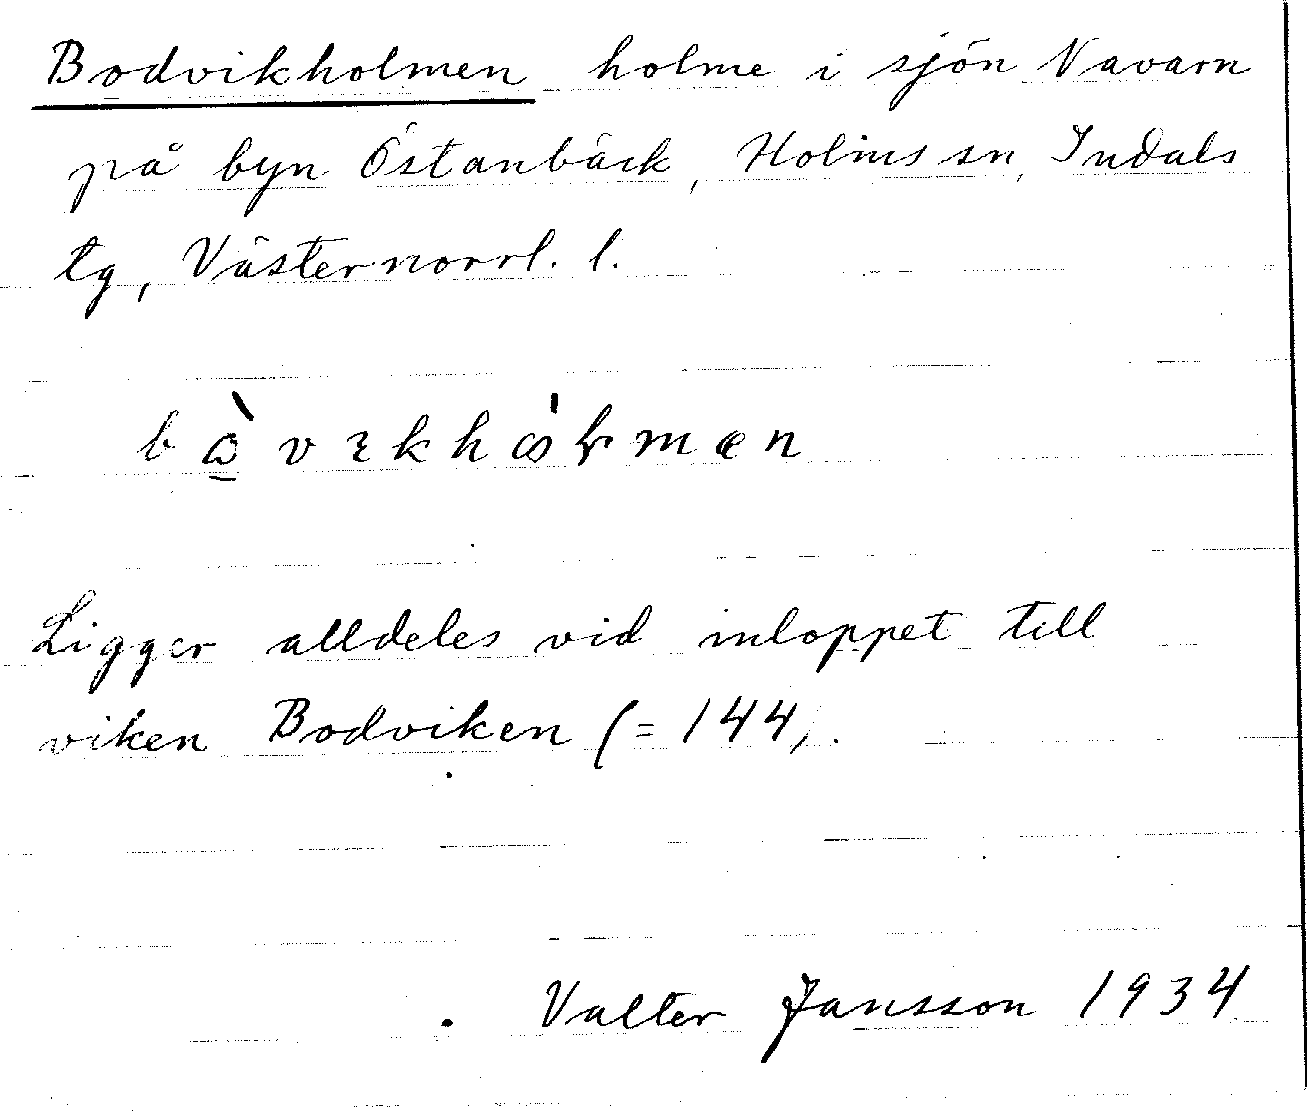 Bodvikholmen holme i sjön Navarn
på byn Östanbäck, Holms sn, Indals
tg, Västernorrl. l.
Ligger alldeles vid inloppet till
viken Bodviken (= 144).
Valter Jansson 1934